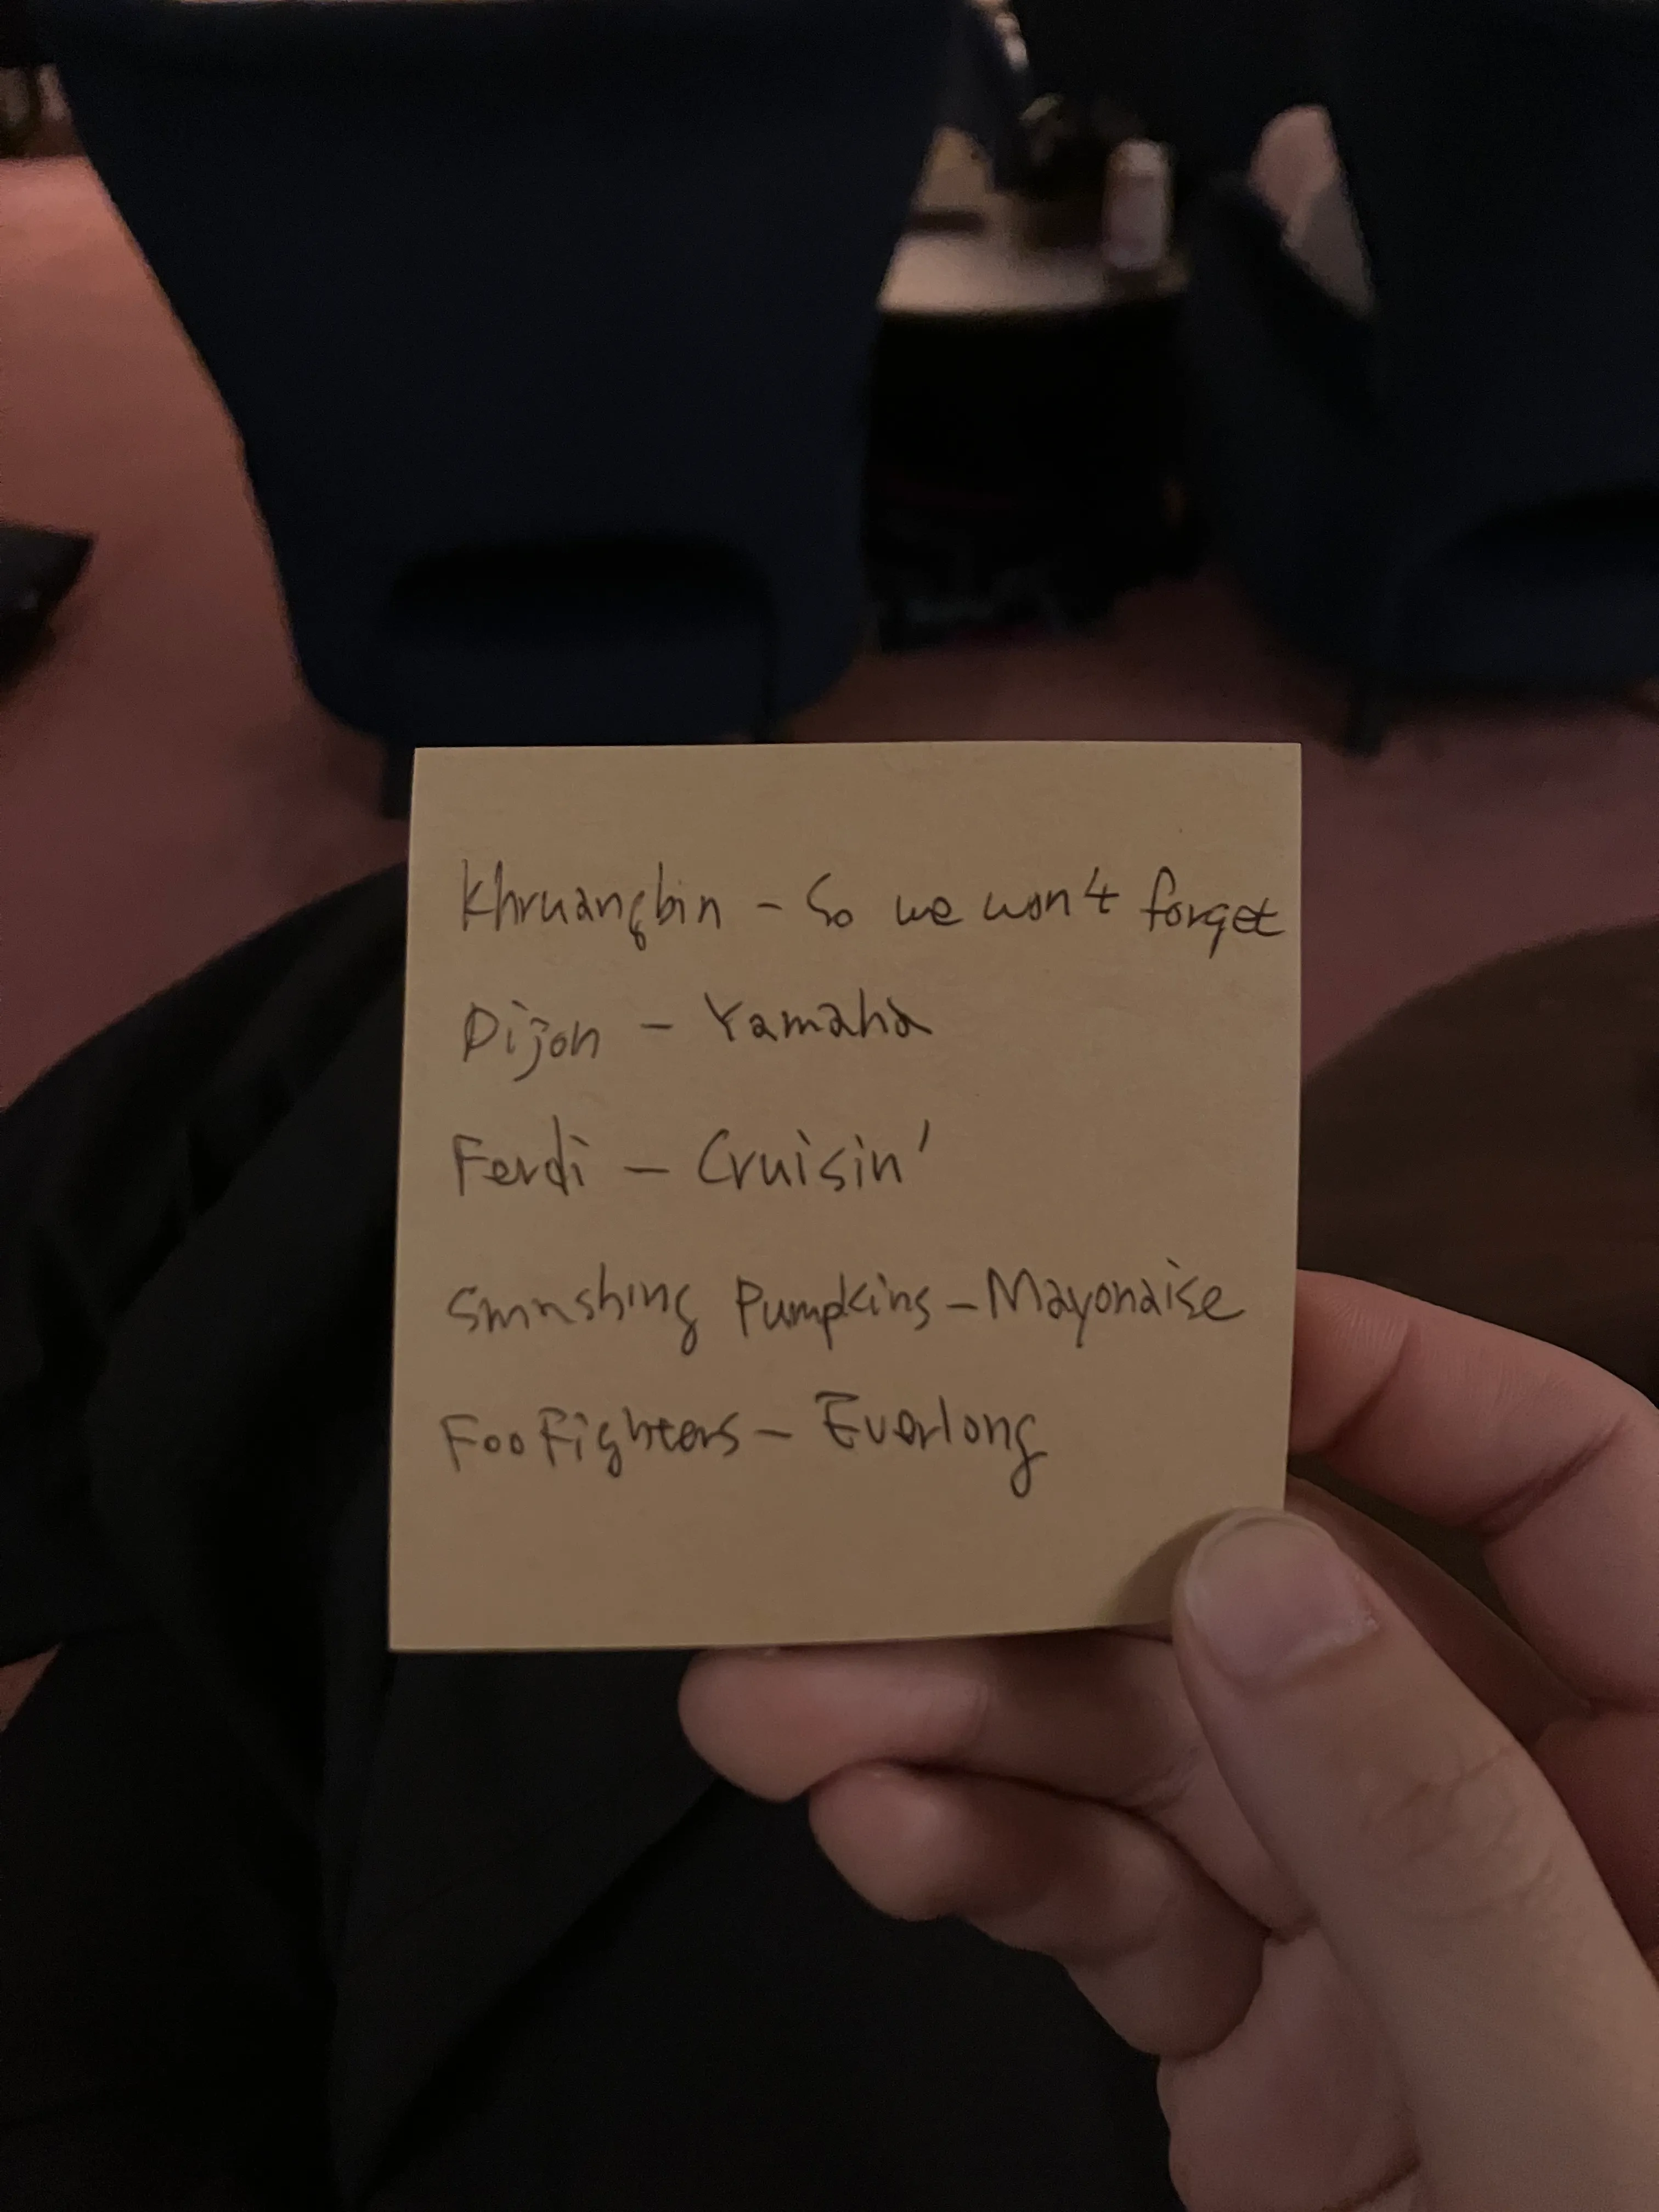 Khruangbin - So we won't forget
Dijon - Yamaha
Ferdi - Cruisin'
Smashing Pumpkins - Mayonaise
Foo Fighters - Everlong